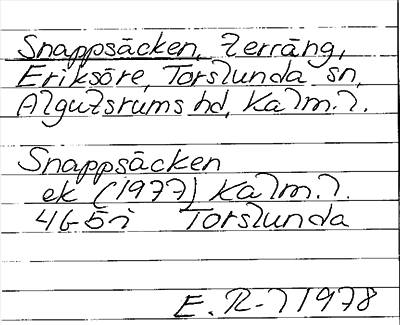 Snappsäcken, terräng,
Eriksöre, Torslunda sn,
Algutsrums hd, Kalm.l.
Snappsäcken
ek (1977) Kalm.l.
4G5i Torslunda
E.R-l 1978